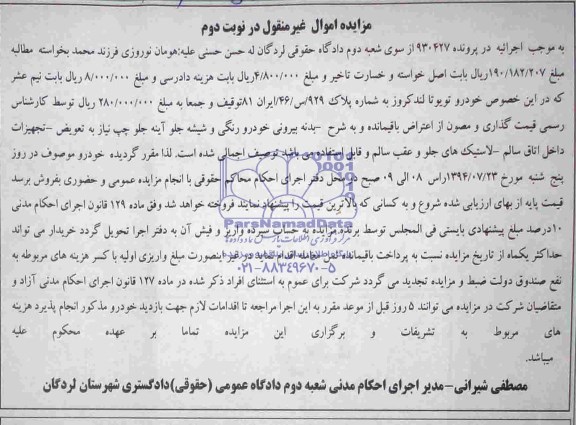 مزایده اموال غیرمنقول در نوبت دوم
به موجب اجرائیه در پرونده ۹۳۰۴۲۷ از سوی شعبه دوم دادگاه حقوقی لردگان له حسن حسنی علیه:هومان نوروزی فرزند محمد بخواسته مطالبه
مبلغ ۱۹۰/۱۸۲/۲۰۷ریال بابت اصل خواسته و خسارت تاخیر و مبلغ ۴/۸۰۰/۰۰۰ریال بابت هزینه دادرسی و مبلغ ۸/۰۰۰/۰۰۰ ریال بابت نیم عشر
که در این خصوص خودرو تویوتا لندکروز به شماره پلاک ۹۲۹س/۴۶ایران ۸۱توقیف و جمعا به مبلغ ۲۸۰/۰۰۰/۰۰۰ ریال توسط کارشناس
رسمی قیمت گذاری و مصون از اعتراض باقیمانده و به شرح -بدنه بیرونی خودرو رنگی و شیشه جلو آینه جلو چپ نیاز به تعویض -تجهیزات
داخل اتاق سالم -لاستیک های جلو و عقب سالم و قابل استفاده می باشد توصیف اجمالی شده است. لذا مقرر گردیده خودرو موصوف در روز
پنج شنبه مورخ ۱۳۹۴/۰۷/۲۳راس ۰۸ الی ۰۹ صبح در محل دفتر اجرای احکام محاکم حقوقی با انجام مزایده عمومی و حضوری بفروش برسد
قیمت پایه از بهای ارزیابی شده شروع و به کسانی که بالاترین قیمت را پیشنهاد نمایند فروخته خواهد شد وفق ماده ۱۲۹ قانون اجرای احکام مدنی
۱۰درصد مبلغ پیشنهادی بایستی فی المجلس توسط برنده مزایده به حساب سپرده واریز و فیش آن به دفتر اجرا تحویل گردد خریدار می تواند
حداکثر یکماه از تاریخ مزایده نسبت به پرداخت باقیمانده ثمن معامله اقدام نماید در غیر اینصورت مبلغ واریزی اولیه با کسر هزینه های مربوطه به
نفع صندوق دولت ضبط و مزایده تجدید می گردد شرکت برای عموم به استثنای افراد ذکر شده در ماده ۱۲۷ قانون اجرای احکام مدنی آزاد و
متقاضیان شرکت در مزایده می توانند ۵ روز قبل از موعد مقرر به این اجرا مراجعه تا اقدامات لازم جهت بازدید خودرو مذکور انجام پذیرد هزینه
های مربوط به تشریفات و برگزاری این مزایده تماما بر عهده محکوم علیه
میباشد.
مصطفی شیرانی-مدیر اجرای احکام مدنی شعبه دوم دادگاه عمومی (حقوقی)دادگستری شهرستان لردگان
ParsNamadData
۰۲۱-۸۸۳۴۹۶۷۰-۵